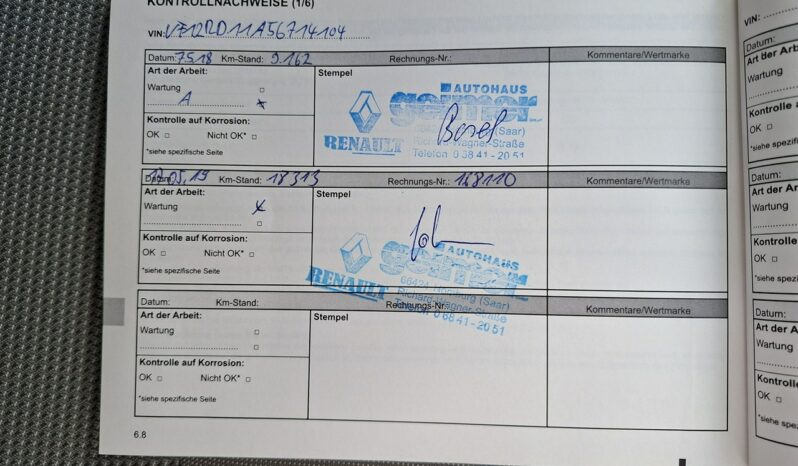 KONTROLLNACHWEISE (1/6)
VIN: VF12RD11A56714104
Datum: 7.5.18 Km-Stand: 9.162 Rechnungs-Nr.: Kommentare/Wertmarke
Art der Arbeit: Stempel
Wartung
A
Kontrolle auf Korrosion:
OK Nicht OK*
*siehe spezifische Seite
RENAULT
AUTOHAUS
germer
(Saar)
Richard-Wagner-Straße
Telefon 0 68 41 - 20 51
Datum: 17.05.19 Km-Stand: 18313 Rechnungs-Nr.: 128110 Kommentare/Wertmarke
Art der Arbeit: Stempel
Wartung x
Kontrolle auf Korrosion:
OK Nicht OK*
*siehe spezifische Seite
RENAULT
AUTOHAUS
germer
66424 Homburg (Saar)
Richard-Wagner-Straße
Telefon 0 68 41 - 20 51
Datum: Km-Stand: Rechnungs-Nr.: Kommentare/Wertmarke
Art der Arbeit: Stempel
Wartung
Kontrolle auf Korrosion:
OK Nicht OK*
*siehe spezifische Seite
6.8
VIN:
Datum:
Art der Ar
Wartung
Kontrolle
OK
*siehe spezifi
Datum:
Art der Ar
Wartung
Kontrolle
OK
*siehe spezifi
Datum:
Art der A
Wartung
Kontroll
OK
*siehe spe